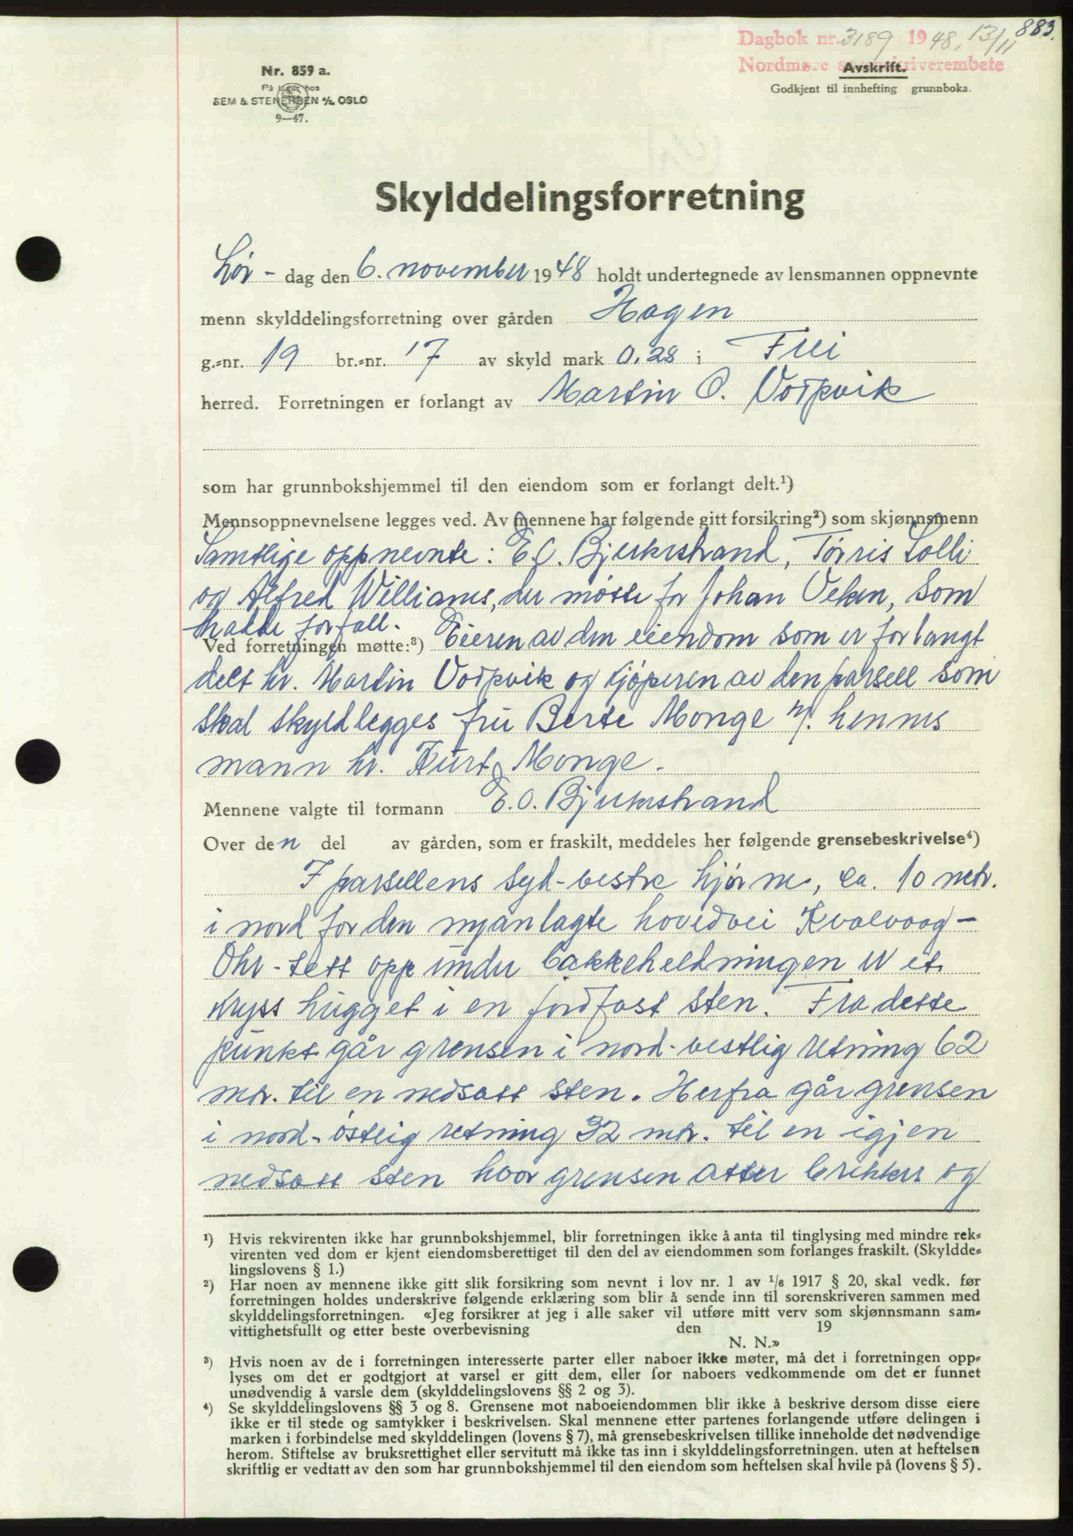 883.
Dagbok nr. 3189 1948, 13/11
Nordmøre sorenskriverembete
Avskrift.
Godkjent til innhefting grunnboka.
Nr. 859 a.
På lager hos
SEM & STENERSEN A/S, OSLO
9—47.
Skylddelingsforretning
Lør - dag den 6. november 1948 holdt undertegnede av lensmannen oppnevnte
menn skylddelingsforretning over gården Hagen
g.-nr. 19 br.-nr. 17 av skyld mark 0,28 i Frei
herred. Forretningen er forlangt av Martin O. Vorpvik
som har grunnbokshjemmel til den eiendom som er forlangt delt.¹)
Mennsoppnevnelsene legges ved. Av mennene har følgende gitt forsikring²) som skjønnsmenn
Samtlige oppnevnte: E.O. Bjerkestrand, Tørris Solli
og Alfred Williams, der møtte for Johan Veken, som
hadde forfall.
Ved forretningen møtte:³) Eieren av den eiendom som er forlangt
delt hr. Martin Vorpvik og kjøperen av den parsell som
skal skyldlegges fru Berte Monge v/ hennes
mann hr. Kurt Monge.
Mennene valgte til formann E.O. Bjerkestrand
Over den del av gården, som er fraskilt, meddeles her følgende grensebeskrivelse⁴)
I parsellens syd-vestre hjørne, ca. 10 metr.
i nord for den nyanlagte hovedvei Kvalvaag-
Ohr - tett opp under bakkeheldningen er et
kryss hugget i en jordfast sten. Fra dette
punkt går grensen i nord-vestlig retning 62
mtr. til en nedsatt sten. Herfra går grensen
i nord-østlig retning 32 mtr. til en igjen
nedsatt sten hvor grensen atter brekkes og
¹) Hvis rekvirenten ikke har grunnbokshjemmel, blir forretningen ikke å anta til tinglysing med mindre rek-
virenten ved dom er kjent eiendomsberettiget til den del av eiendommen som forlanges fraskilt. (Skyldde-
lingslovens § 1.)
²) Har noen av mennene ikke gitt slik forsikring som nevnt i lov nr. 1 av 1/6 1917 § 20, skal vedk. før
forretningen holdes underskrive følgende erklæring som blir å sende inn til sorenskriveren sammen med
skylddelingsforretningen. «Jeg forsikrer at jeg i alle saker vil utføre mitt verv som skjønnsmann sam-
vittighetsfullt og etter beste overbevisning den 19
N. N.»
³) Hvis noen av de i forretningen interesserte parter eller naboer ikke møter, må det i forretningen opp-
lyses om det er godtgjort at varsel er gitt dem, eller for naboers vedkommende om det er funnet
unødvendig å varsle dem (skylddelingslovens §§ 2 og 3).
⁴) Se skylddelingslovens §§ 3 og 8. Grensene mot naboeiendommen blir ikke å beskrive dersom disse eiere
ikke er til stede og samtykker i beskrivelsen. Skal mennene etter partenes forlangende utføre delingen i
marken i forbindelse med skylddelingen (lovens § 7), må grensebeskrivelsen tillike inneholde det nødvendige
herom. Stiftelse av bruksrettighet eller servitutt må ikke tas inn i skylddelingsforretningen, uten at heftelsen
skriftlig er vedtatt av den som har grunnbokshjemmel til den eiendom som heftelsen skal hvile på (lovens § 5).